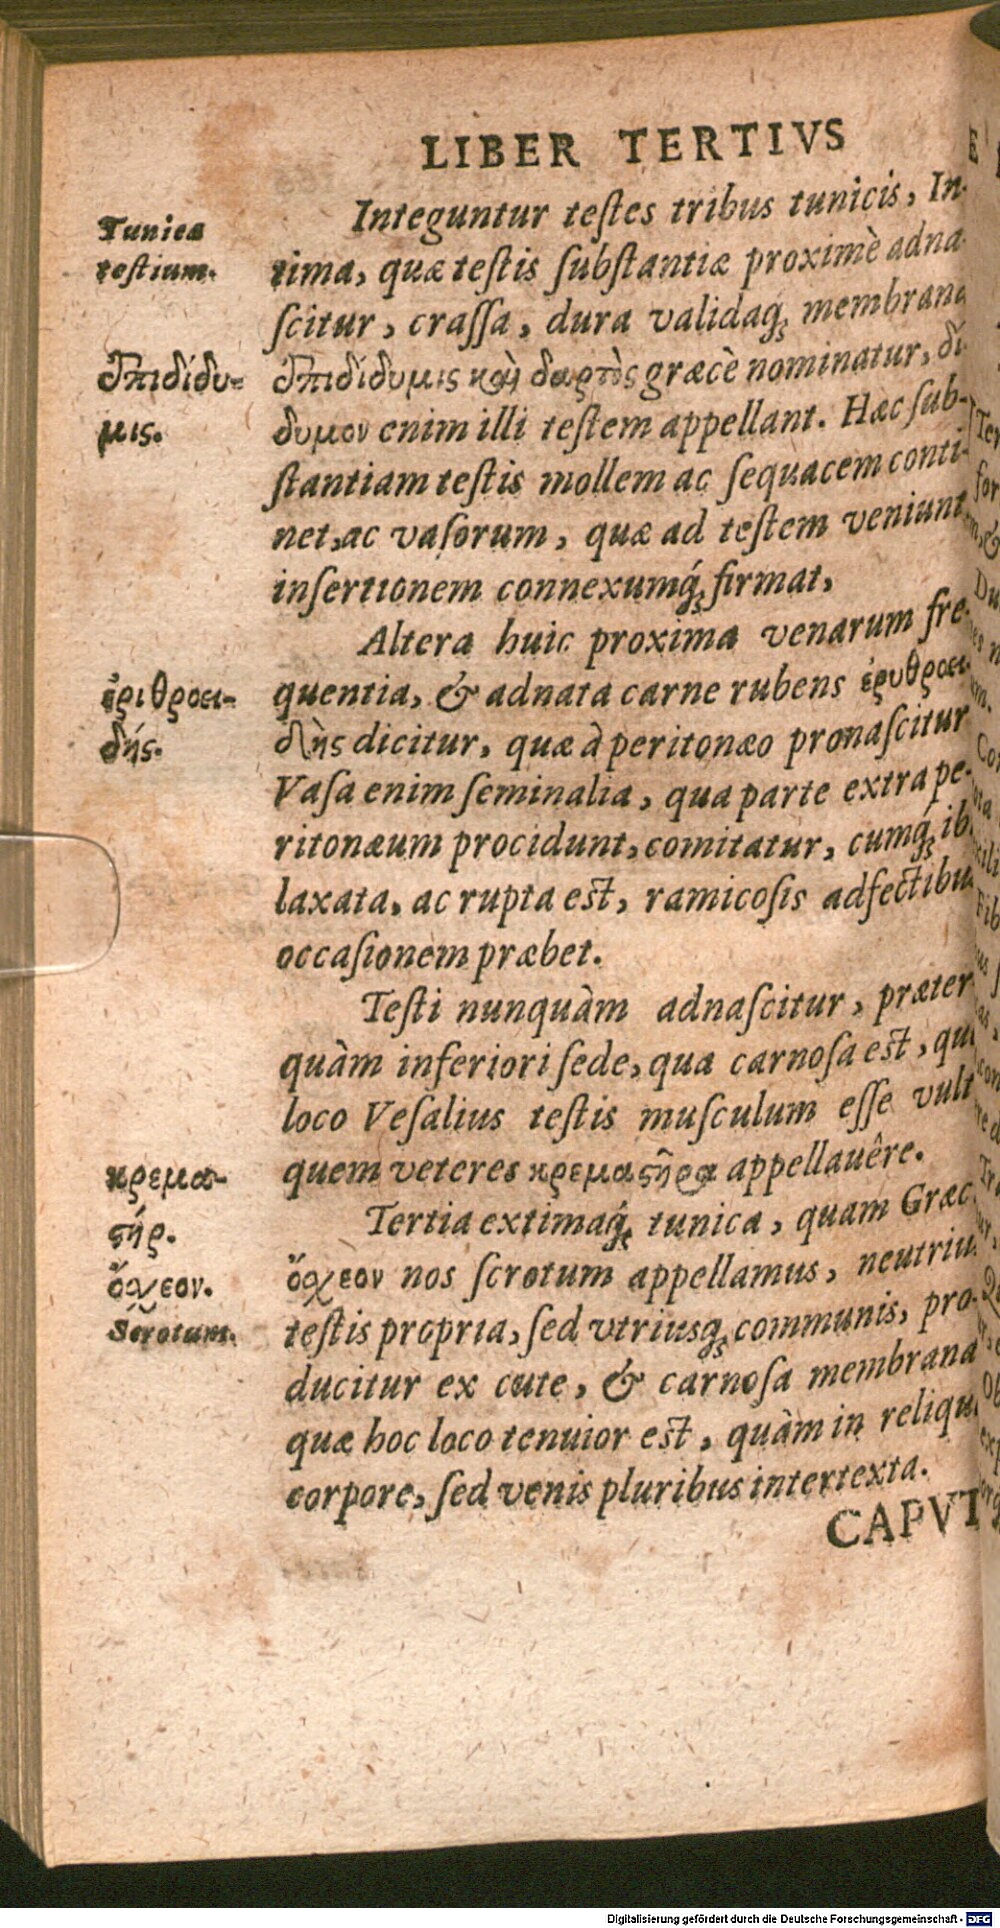 LIBER TERTIVS
Tunicæ
testium.
Integuntur testes tribus tunicis, In-
tima, quæ testis substantiæ proximè adna-
scitur, crassa, dura validaq́; membrana
ἐπιδίδυ-
μις.
ἐπιδίδυμις καὶ δαρτὸς græcè nominatur, δί-
δυμον enim illi testem appellant. Hæc sub-
stantiam testis mollem ac sequacem conti-
net, ac vasorum, quæ ad testem veniunt,
insertionem connexumq́; firmat,
Altera huic proxima venarum fre-
ἐριθροει-
δής.
quentia, & adnata carne rubens ἐρυθροει-
δὴς dicitur, quæ à peritonæo pronascitur
Vasa enim seminalia, qua parte extra pe-
ritonæum procidunt, comitatur, cumq́; ib
laxata, ac rupta est, ramicosis adfectibu
occasionem præbet.
Testi nunquàm adnascitur, præter
quàm inferiori sede, qua carnosa est, qu
loco Vesalius testis musculum esse vult
κρεμα-
στήρ.
quem veteres κρεμαστῆρα appellauêre.
Tertia extimaq́; tunica, quam Græc
ὄσχεον.
ὄσχεον nos scrotum appellamus, neutriu
Scrotum.
testis propria, sed vtriusq́; communis, pro-
ducitur ex cute, & carnosa membrana
quæ hoc loco tenuior est, quàm in reliqu
corpore, sed venis pluribus intertexta.
CAPVT
Digitalisierung gefördert durch die Deutsche Forschungsgemeinschaft - DFG